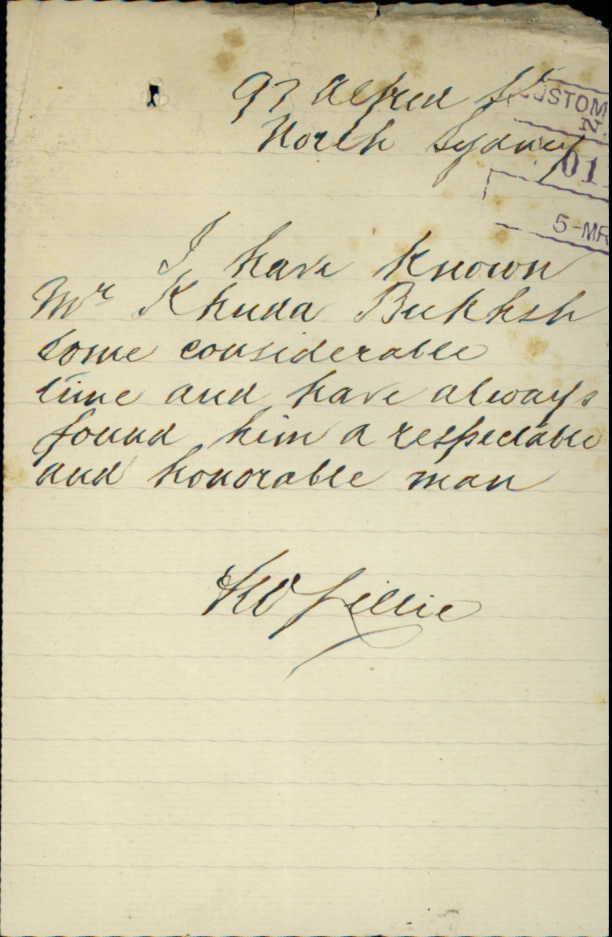 97 Alfred St
North Sydney
CUSTOM
N.
01
5-MR
I have known
Mr Khuda Bukhsh
some considerable
time and have always
found him a respectable
and honorable man